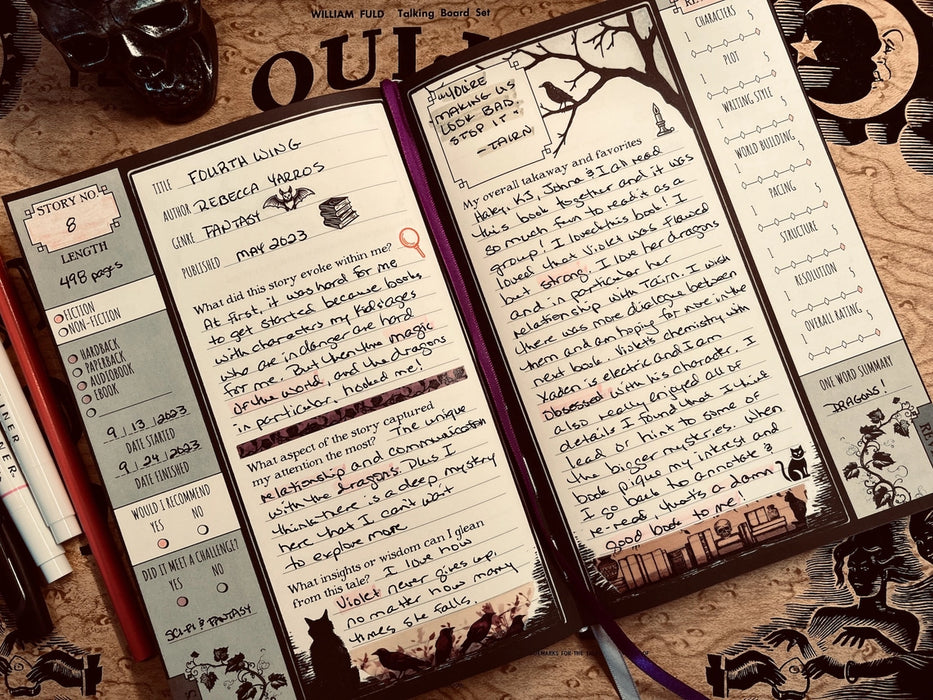 WILLIAM FULD Talking Board Set
OUIJ
STORY NO.
8
LENGTH
498 pages
FICTION
NON-FICTION
HARDBACK
PAPERBACK
AUDIOBOOK
EBOOK
9/13/2023
DATE STARTED
9/24/2023
DATE FINISHED
WOULD I RECOMMEND
YES NO
DID IT MEET A CHALLENGE?
YES NO
SCI-FI & FANTASY
TITLE FOURTH WING
AUTHOR REBECCA YARROS
GENRE FANTASY
PUBLISHED MAY 2023
What did this story evoke within me?
At first, it was hard for me
to get started because books
with characters my kids ages
who are in danger are hard
for me. But then the magic
of the world, and the dragons
in particular, hooked me!
What aspect of the story captured
my attention the most? The unique
relationship and communication
with the dragons. Plus I
think there is a deep mystery
here that I can't wait
to explore more
What insights or wisdom can I glean
from this tale? I love how
Violet never gives up,
no matter how many
times she falls.
"YOU'RE
MAKING US
LOOK BAD.
STOP IT"
-TAIRN
My overall takaway and favorites
Haley, KJ, Johna & I all read
this book together and it was
so much fun to read it as a
group! I loved this book! I
loved that Violet was flawed
but strong. I love her dragons
and in particular her
relationship with Tairn. I wish
there was more dialogue between
them and am hoping for more in the
next book. Violet's chemistry with
Xaden is electric and I am
obsessed with his character. I
also really enjoyed all of
details I found that I think
lead or hint to some of
the bigger mysteries. When
book pique my intrest and
I go back to annotate &
re-read, that's a damn
good book to me!
CHARACTERS
1 5
PLOT
1 5
WRITING STYLE
1 5
WORLD BUILDING
1 5
PACING
1 5
STRUCTURE
1 5
RESOLUTION
1 5
OVERALL RATING
1 5
ONE WORD SUMMARY
DRAGONS!